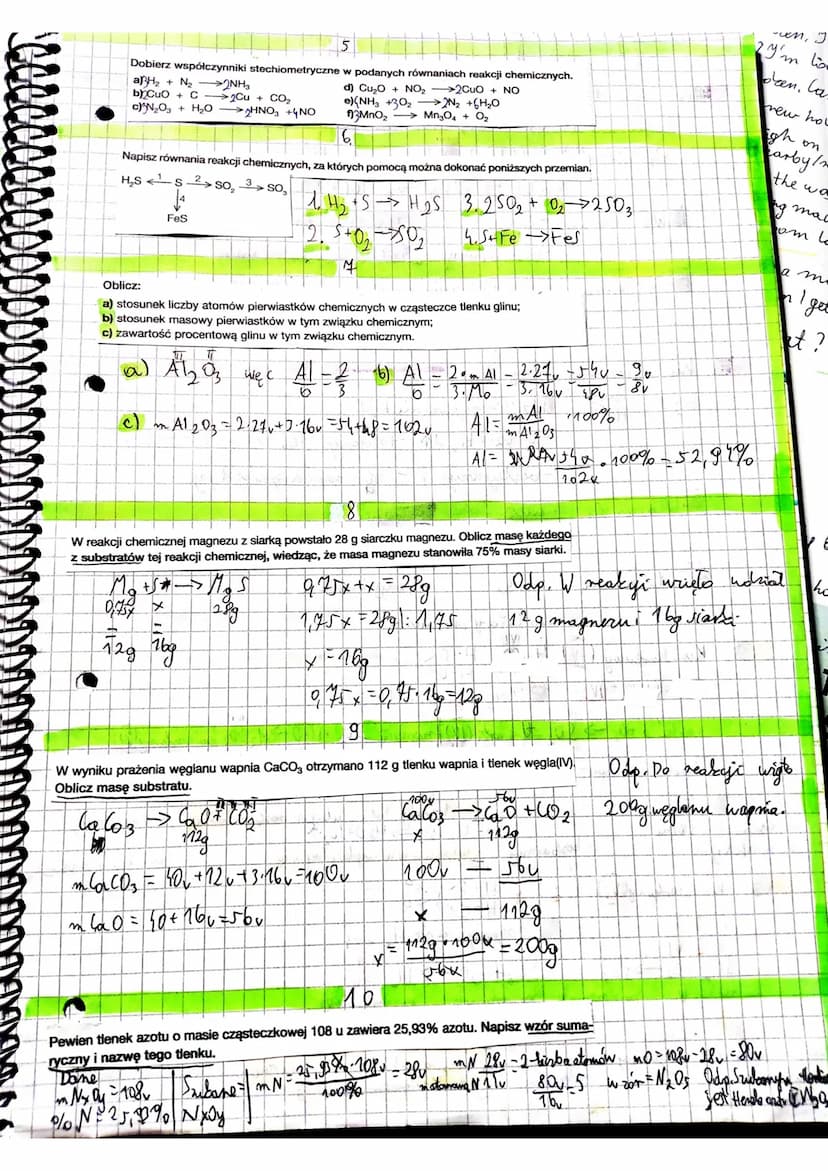 5
Dobierz współczynniki stechiometryczne w podanych równaniach reakcji chemicznych.
a) 3H₂ + N₂ → 2NH₃
d) Cu₂O + NO₂ → 2CuO + NO
b) 2CuO + C → 2Cu + CO₂
e) NH₃ + 3O₂ → 2N₂ + 6H₂O
c) N₂O₃ + H₂O → 2HNO₃ + 4NO
f) 3MnO₂ → Mn₃O₄ + O₂
6.
Napisz równania reakcji chemicznych, za których pomocą można dokonać poniższych przemian.
H₂S ←1 S 2→ SO₂ 3→ SO₃
↓4
FeS
1. H₂ + S → H₂S 3. 2SO₂ + O₂ → 2SO₃
2. S + O₂ → SO₂ 4. S + Fe → FeS
7
Oblicz:
a) stosunek liczby atomów pierwiastków chemicznych w cząsteczce tlenku glinu;
b) stosunek masowy pierwiastków w tym związku chemicznym;
c) zawartość procentową glinu w tym związku chemicznym.
a) Al₂O₃ III II więc Al/O = 2/3 b) Al/O = 2·mAl/3·MO = 2·27u/3·16u = 54u/48u = 9u/8u
c) mAl₂O₃ = 2·27u + 3·16u = 54+48 = 102u Al = mAl/mAl₂O₃ · 100%
Al = 54u/102u · 100% = 52,94%
8
W reakcji chemicznej magnezu z siarką powstało 28 g siarczku magnezu. Oblicz masę każdego
z substratów tej reakcji chemicznej, wiedząc, że masa magnezu stanowiła 75% masy siarki.
Mg + S → MgS 0,75x + x = 28g Odp. W reakcji wzięło udział
0,75x x 28g 1,75x = 28g |: 1,75 12g magnezu i 16g siarki.
= =
12g 16g x = 16g
0,75x = 0,75 · 16g = 12g
9
W wyniku prażenia węglanu wapnia CaCO₃ otrzymano 112 g tlenku wapnia i tlenek węgla(IV).
Oblicz masę substratu.
Odp. Do reakcji wzięto
200g węglanu wapnia.
CaCO₃ → CaO + CO₂
112g
100u 56u
CaCO₃ → CaO + CO₂
x 112g
mCaCO₃ = 40u + 12u + 3·16u = 100u 100u — 56u
mCaO = 40 + 16u = 56u x — 112g
x = 112g · 100u / 56u = 200g
10
Pewien tlenek azotu o masie cząsteczkowej 108 u zawiera 25,93% azotu. Napisz wzór suma-
ryczny i nazwę tego tlenku.
Dane Szukane mN = 25,93% · 108u / 100% = 28u
mNxOy = 108u NxOy
%N = 25,93%
mN 28u = 2 - liczba atomów mO = 108u - 28u = 80u
80u/16u = 5 wzór = N₂O₅